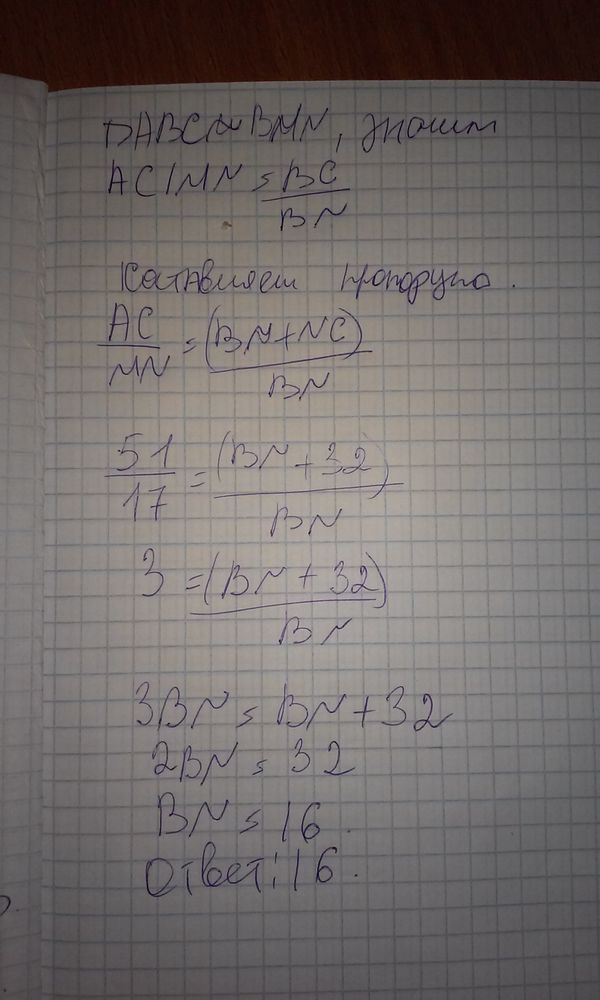 DABC ~ BMN, значит
AC/MN = BC/BN
Составляем пропорцию.
AC/MN = (BN+NC)/BN
51/17 = (BN+32)/BN
3 = (BN+32)/BN
3BN = BN+32
2BN = 32
BN = 16.
Ответ: 16.